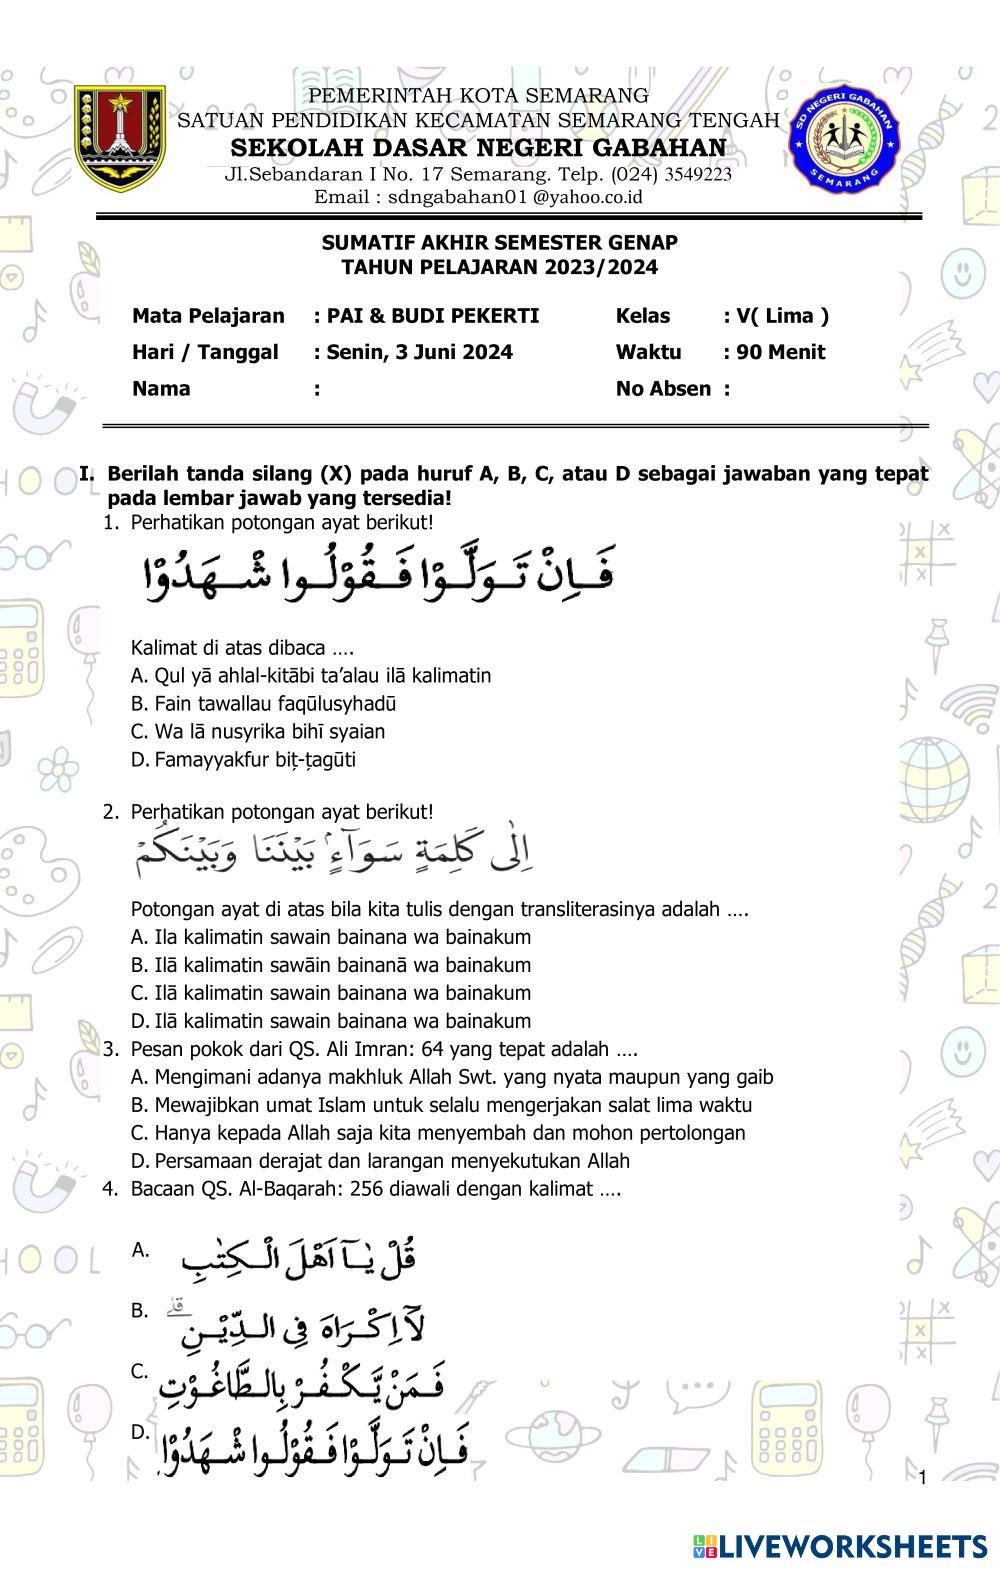 PEMERINTAH KOTA SEMARANG
SATUAN PENDIDIKAN KECAMATAN SEMARANG TENGAH
SEKOLAH DASAR NEGERI GABAHAN
Jl.Sebandaran I No. 17 Semarang. Telp. (024) 3549223
Email : sdngabahan01 @yahoo.co.id
SD NEGERI GABAHAN
SEMARANG
SUMATIF AKHIR SEMESTER GENAP
TAHUN PELAJARAN 2023/2024
Mata Pelajaran : PAI & BUDI PEKERTI Kelas : V( Lima )
Hari / Tanggal : Senin, 3 Juni 2024 Waktu : 90 Menit
Nama : No Absen :
I. Berilah tanda silang (X) pada huruf A, B, C, atau D sebagai jawaban yang tepat
pada lembar jawab yang tersedia!
1. Perhatikan potongan ayat berikut!
فَاِنْ تَوَلَّوْا فَقُوْلُوا شْهَدُوْا
Kalimat di atas dibaca ....
A. Qul yā ahlal-kitābi ta’alau ilā kalimatin
B. Fain tawallau faqūlusyhadū
C. Wa lā nusyrika bihī syaian
D. Famayyakfur biṭ-ṭagūti
2. Perhatikan potongan ayat berikut!
اِلٰى كَلِمَةٍ سَوَاۤءٍۢ بَيْنَنَا وَبَيْنَكُمْ
Potongan ayat di atas bila kita tulis dengan transliterasinya adalah ....
A. Ila kalimatin sawain bainana wa bainakum
B. Ilā kalimatin sawāin bainanā wa bainakum
C. Ilā kalimatin sawain bainana wa bainakum
D. Ilā kalimatin sawain bainana wa bainakum
3. Pesan pokok dari QS. Ali Imran: 64 yang tepat adalah ....
A. Mengimani adanya makhluk Allah Swt. yang nyata maupun yang gaib
B. Mewajibkan umat Islam untuk selalu mengerjakan salat lima waktu
C. Hanya kepada Allah saja kita menyembah dan mohon pertolongan
D. Persamaan derajat dan larangan menyekutukan Allah
4. Bacaan QS. Al-Baqarah: 256 diawali dengan kalimat ....
A. قُلْ يٰٓاَهْلَ الْكِتٰبِ
B. لَآ اِكْرَاهَ فِى الدِّيْنِۗ
C. فَمَنْ يَّكْفُرْ بِالطَّاغُوْتِ
D. فَاِنْ تَوَلَّوْا فَقُوْلُوا شْهَدُوْا
1
LIVEWORKSHEETS